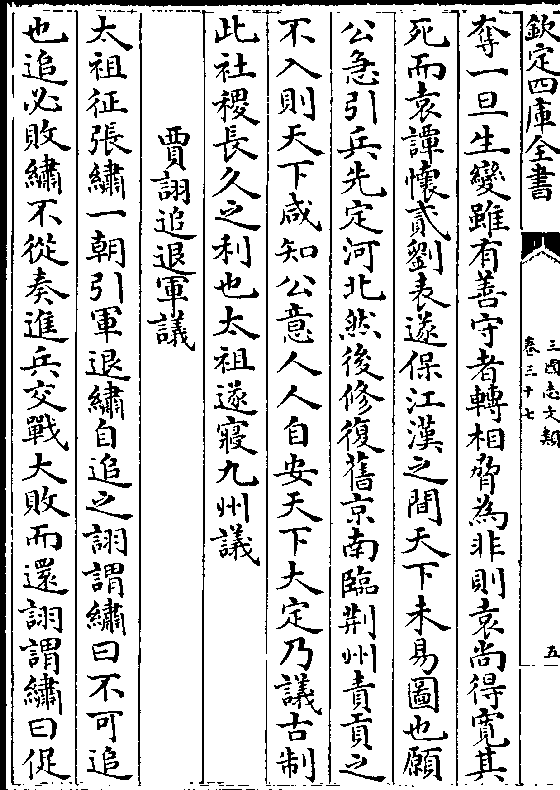 欽定四庫全書
三國志文類
卷三十七
五
奪一旦生變雖有善守者轉相脅為非則袁尚得寛其
死而袁譚懷貳劉表遂保江漢之間天下未易圖也願
公急引兵先定河北然後修復舊京南臨荆州責貢之
不入則天下咸知公意人人自安天下大定乃議古制
此社稷長久之利也太祖遂寢九州議
賈詡追退軍議
太祖征張繡一朝引軍退繡自追之詡謂繡曰不可追
也追必敗繡不從奏進兵交戰大敗而還詡謂繡曰促